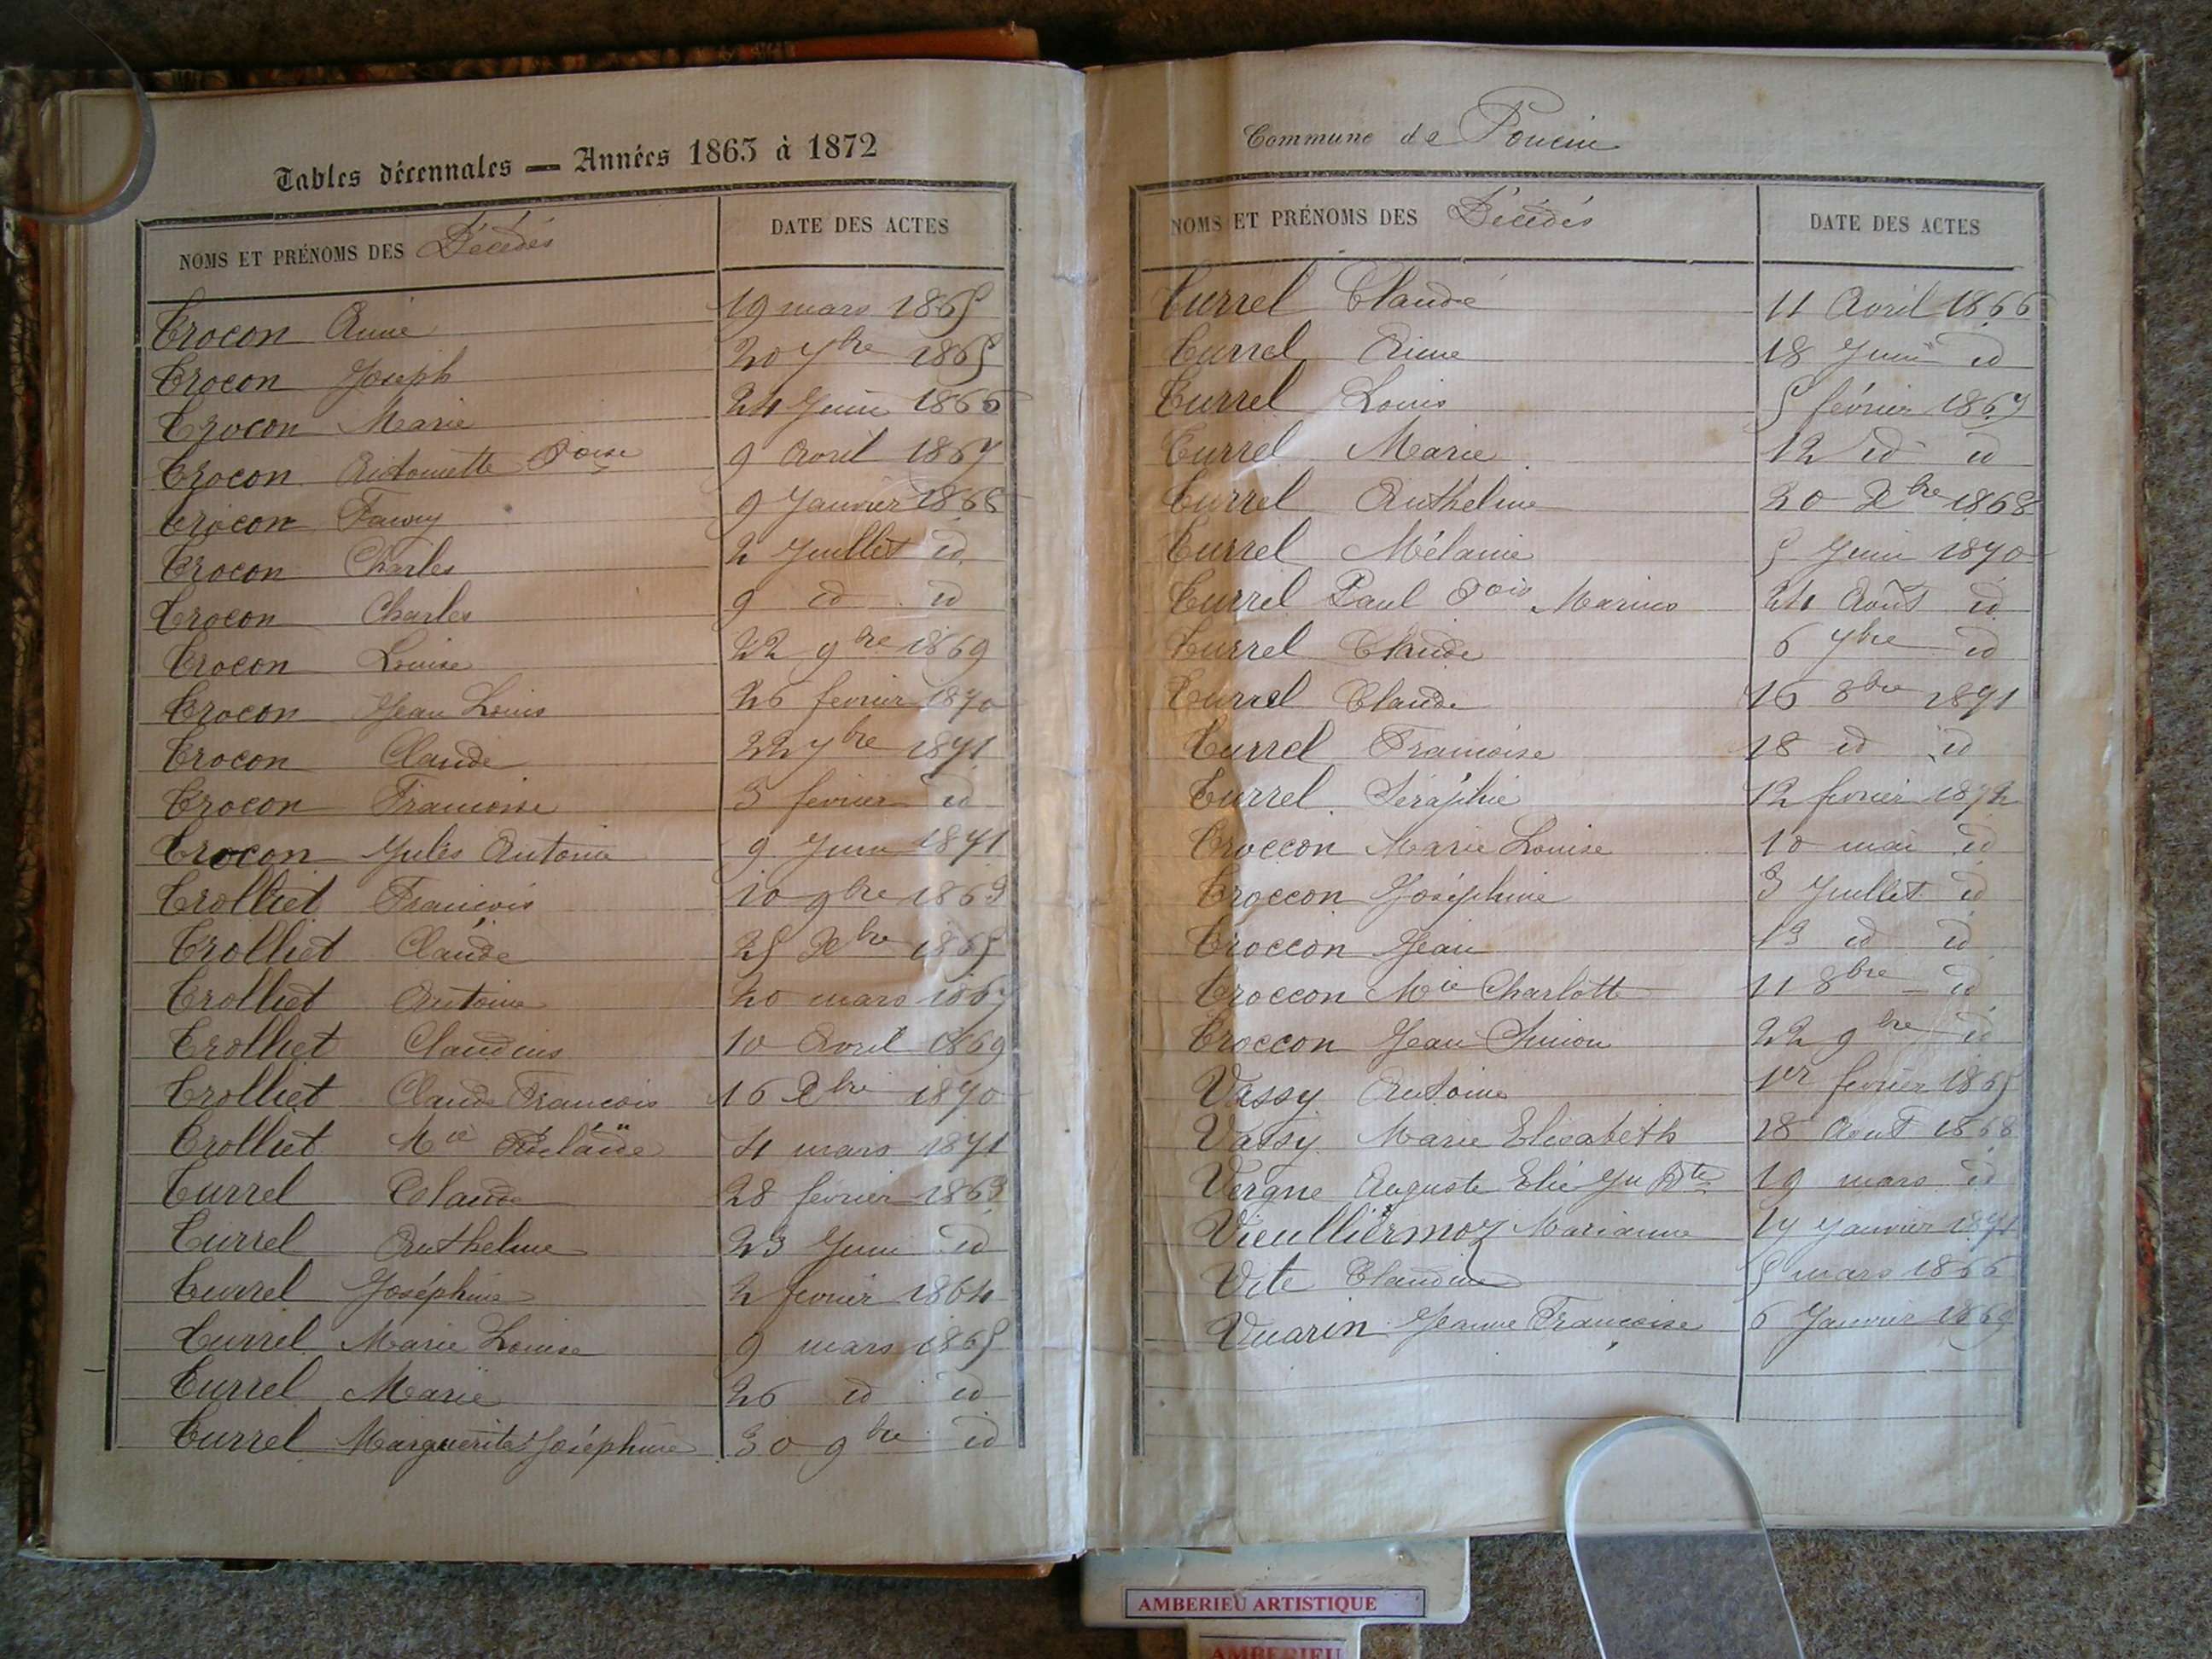 Tables décennales — Années 1863 à 1872
NOMS ET PRÉNOMS DES Décédés DATE DES ACTES
Trocon 19 mars 1865
Trocon Joseph 20 7bre 1865
Trocon Marie 24 Juin 1866
Trocon Antoinette Foise 9 Avril 1867
Trocon Fanny 9 Janvier 1868
Trocon Charles 2 Juillet id
Trocon Charles 9 id id
Trocon Louise 22 9bre 1869
Trocon Jean Louis 26 fevrier 1870
Trocon Claude 22 7bre 1871
Trocon Francoise 3 fevrier id
Trocon Jules Antoine 9 Juin 1871
Trolliet François 10 9bre 1863
Trolliet Claude 25 Xbre 1865
Trolliet Antoine 20 mars 1867
Trolliet Claudius 10 Avril 1869
Trolliet Claude Francois 16 Xbre 1870
Trolliet Mie Adélaïde 4 mars 1871
Turrel Claude 28 fevrier 1863
Turrel Anthelme 23 Juin id
Turrel Joséphine 2 fevrier 1864
Turrel Marie Louise 9 mars 1865
Turrel Marie 26 id id
Turrel Marguerite Joséphine 30 9bre id
Commune de Poncin
NOMS ET PRÉNOMS DES Décédés DATE DES ACTES
Turrel Claude 11 Avril 1866
Turrel 18 Juin id
Turrel Louis 5 février 1867
Turrel Marie 12 id id
Turrel Anthelme 20 Xbre 1868
Turrel Mélanie 5 Juin 1870
Turrel Paul Fois Marius 24 Août id
Turrel Claude 6 7bre id
Turrel Claude 16 8bre 1871
Turrel Francoise 18 id id
Turrel Séraphie 12 fevrier 1872
Troccon Marie Louise 10 mai id
Troccon Joséphine 3 Juillet id
Troccon Jean 13 id id
Troccon Mie Charlotte 11 8bre id
Troccon Jean Simon 22 9bre id
Vassy Antoine 1er fevrier 1865
Vassy Marie Elisabeth 28 Aout 1868
Vergne Auguste Elie Jn Bte 19 mars id
Vieulliermoz Marianne 17 Janvier 1871
Vite Claudine 5 mars 1866
Vuarin Jeanne Francoise 6 Janvier 1869
AMBERIEU ARTISTIQUE
AMBERIEU